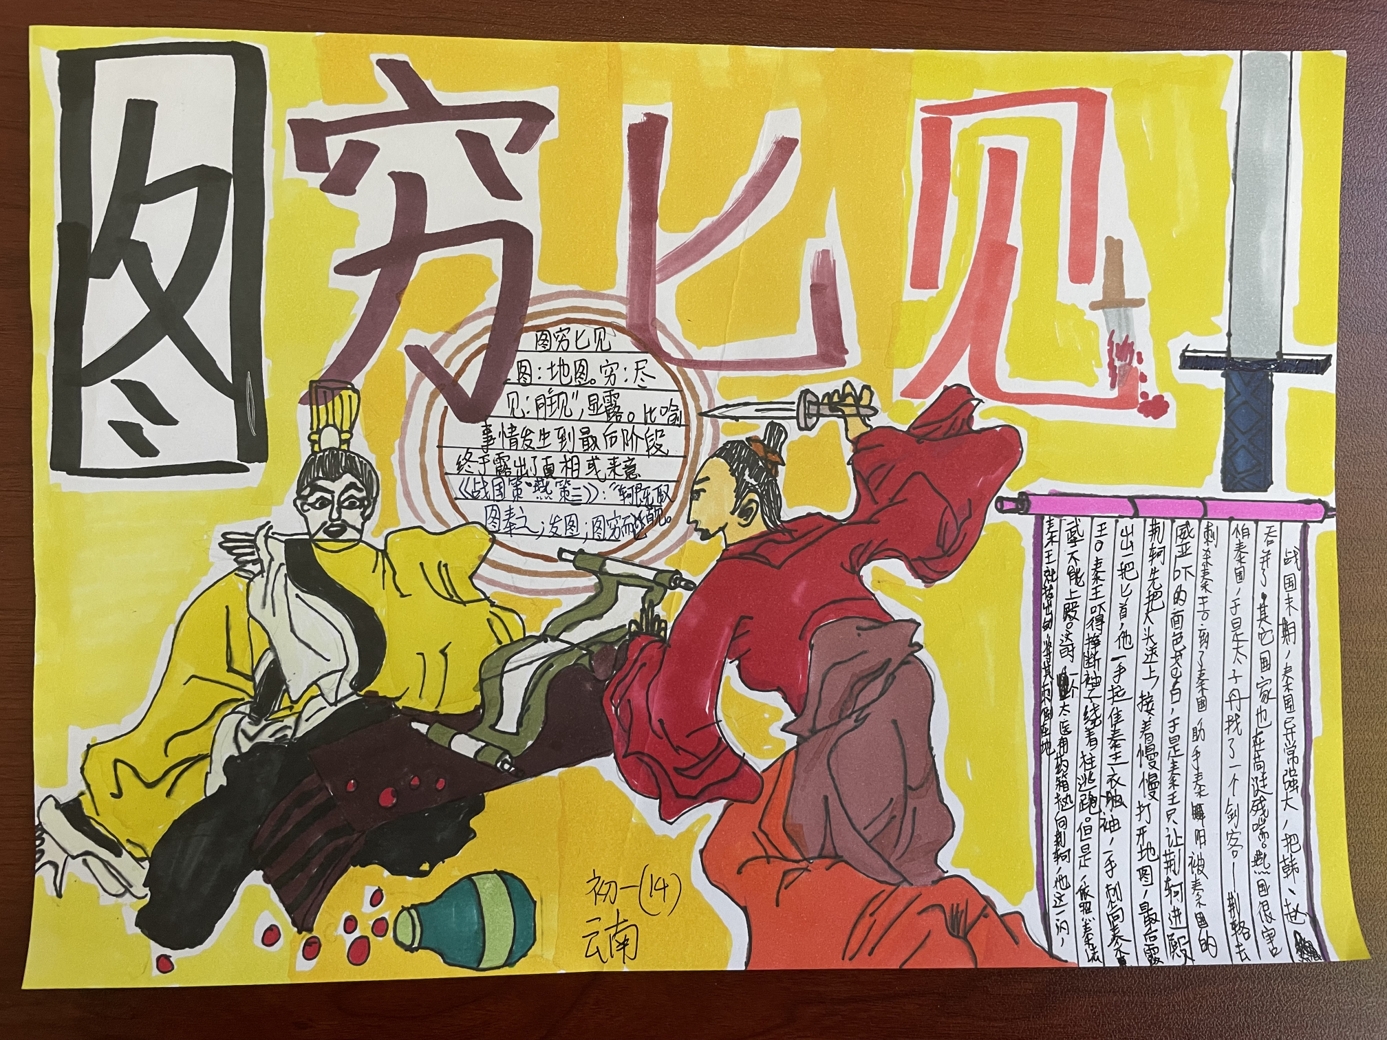 图穷匕见
图穷匕见
图:地图。穷:尽
见:同"现",显露。比喻
事情发生到最后阶段
终于露出了真相或来意
《战国策·燕策三》:"轲既取
图奉之,发图,图穷而匕首见。
战国末期,秦国异常强大,把韩、赵
吞并了,其它国家也在苟延残喘。燕国很害
怕秦国,于是太子丹找了一个剑客。荆轲去
刺杀秦王。到了秦国助手秦舞阳被秦国的
威严吓的面色苍白,于是秦王只让荆轲进殿
荆轲先把人头送上,接着慢慢打开地图,最后露
出一把匕首,他一手拉住秦王衣袖,一手刺向秦
王。秦王吓得挣断袖子绕着柱逃跑。但是,依照秦法
武举不能上殿。这时一个太医用药箱砸向荆轲,他这一闪,
秦王
初一(14)
云南